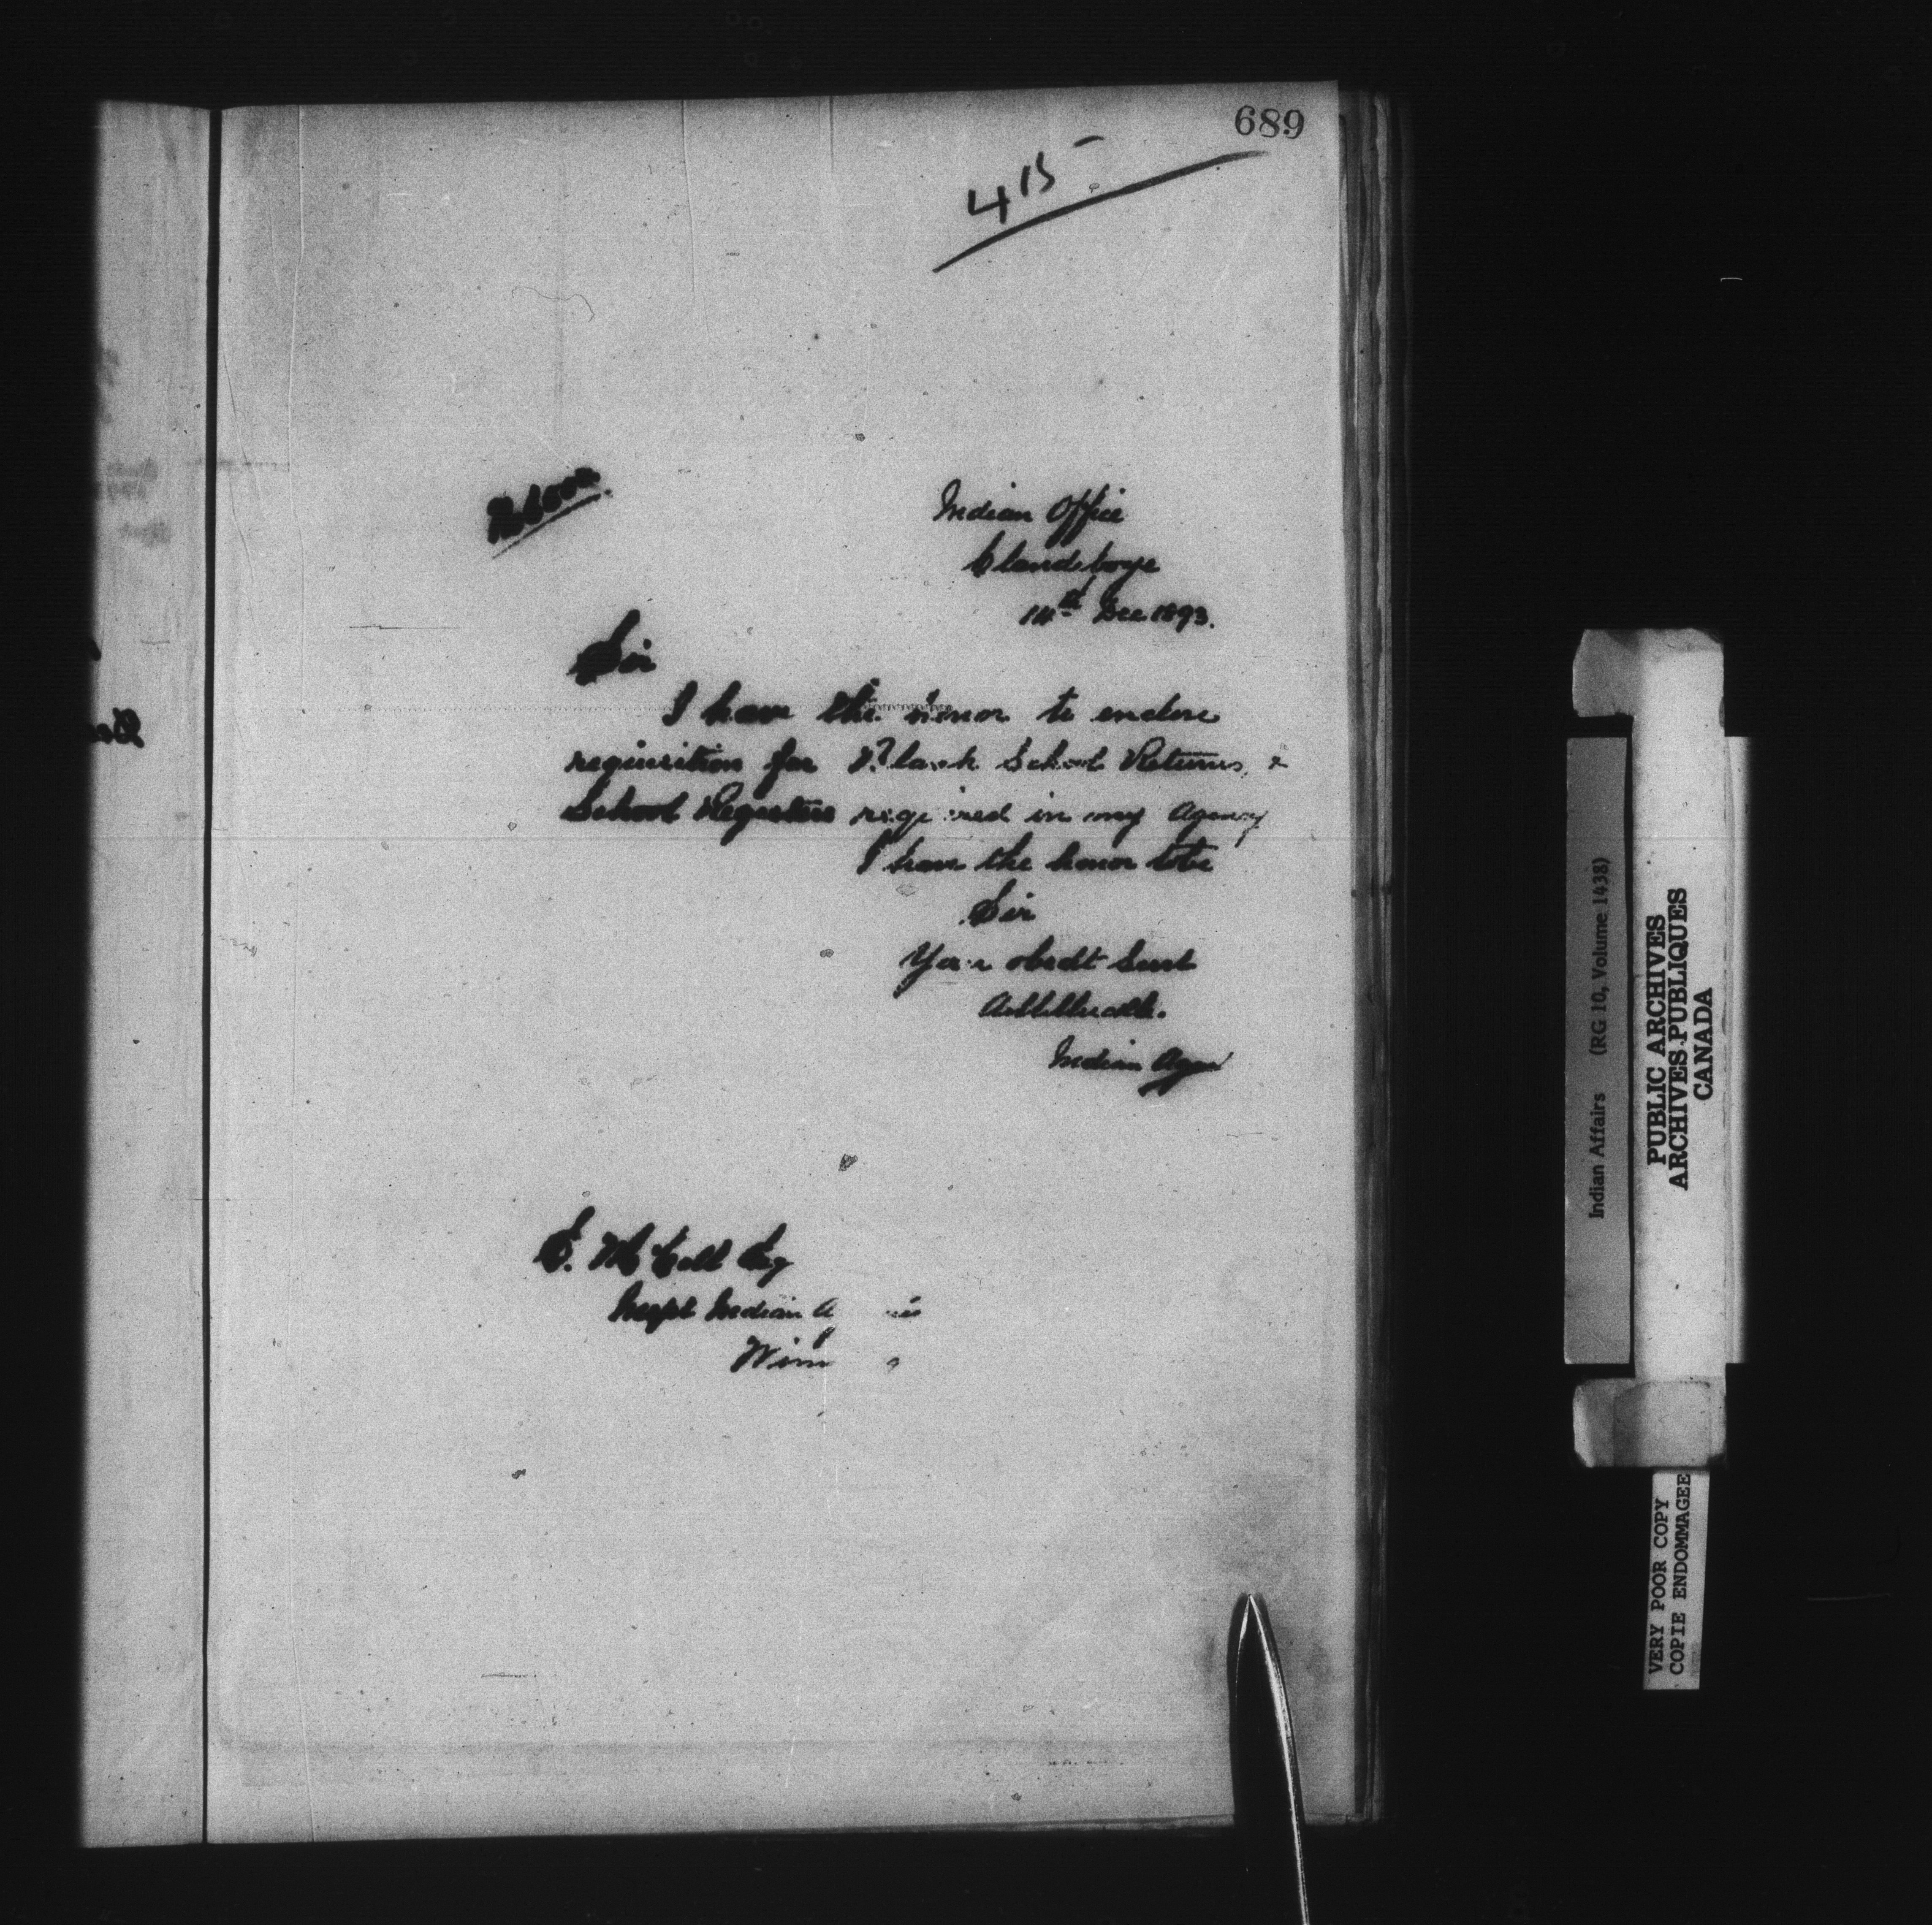 689
415
Indian Office
Clandeboye
14th Dec 1893.
Sir
I have the honor to enclose
requisition for Blank School Returns, &
School Registers required in my Agency
I have the honor to be
Sir
Your obedt Servt
Indian Agen
E. McColl Esq
Inspt Indian A
Winn
Indian Affairs (RG 10, Volume 1438)
PUBLIC ARCHIVES
ARCHIVES PUBLIQUES
CANADA
VERY POOR COPY
COPIE ENDOMMAGEE